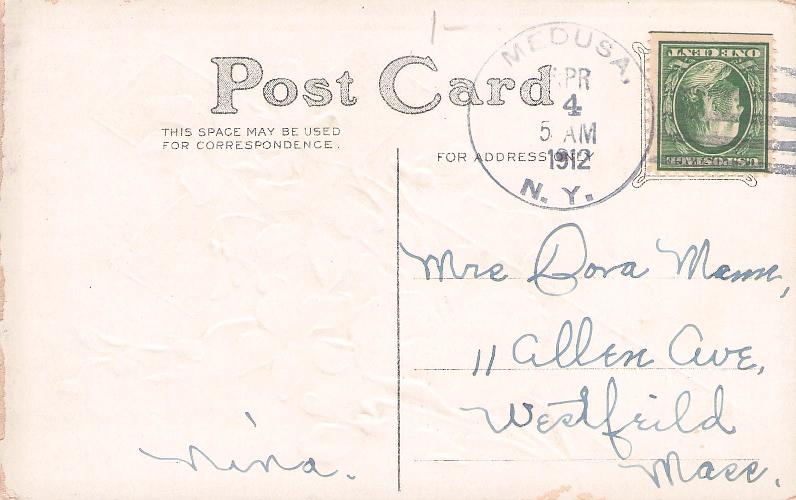 1-
Post Card
THIS SPACE MAY BE USED
FOR CORRESPONDENCE.
FOR ADDRESS ONLY
MEDUSA,
APR
4
5 AM
1912
N. Y.
ONE CENT
U.S. POSTAGE
Mrs Dora Mann,
11 Allen Ave,
Westfeild
Mass.
Nina.